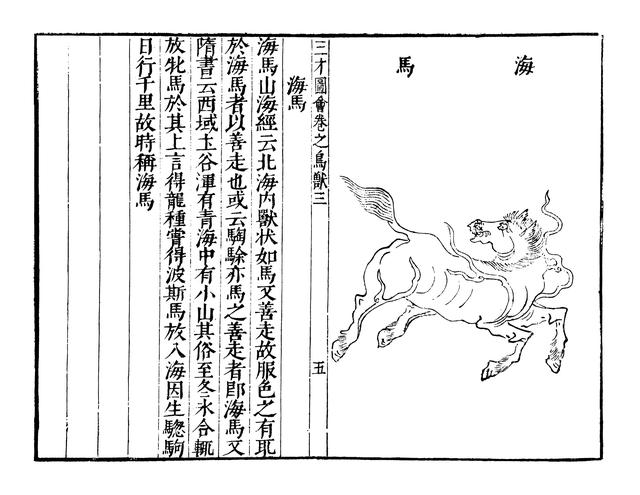 海馬
三才圖會卷之鳥獸三 五
海馬
海馬山海經云北海内獸状如馬又善走故服色之有耴
於海馬者以善走也或云騊駼亦馬之善走者即海馬又
隋書云西域圡谷渾有青海中有小山其俗至冬氷合輒
放牝馬於其上言得龍種嘗得波斯馬放入海因生驄駒
日行千里故時稱海馬